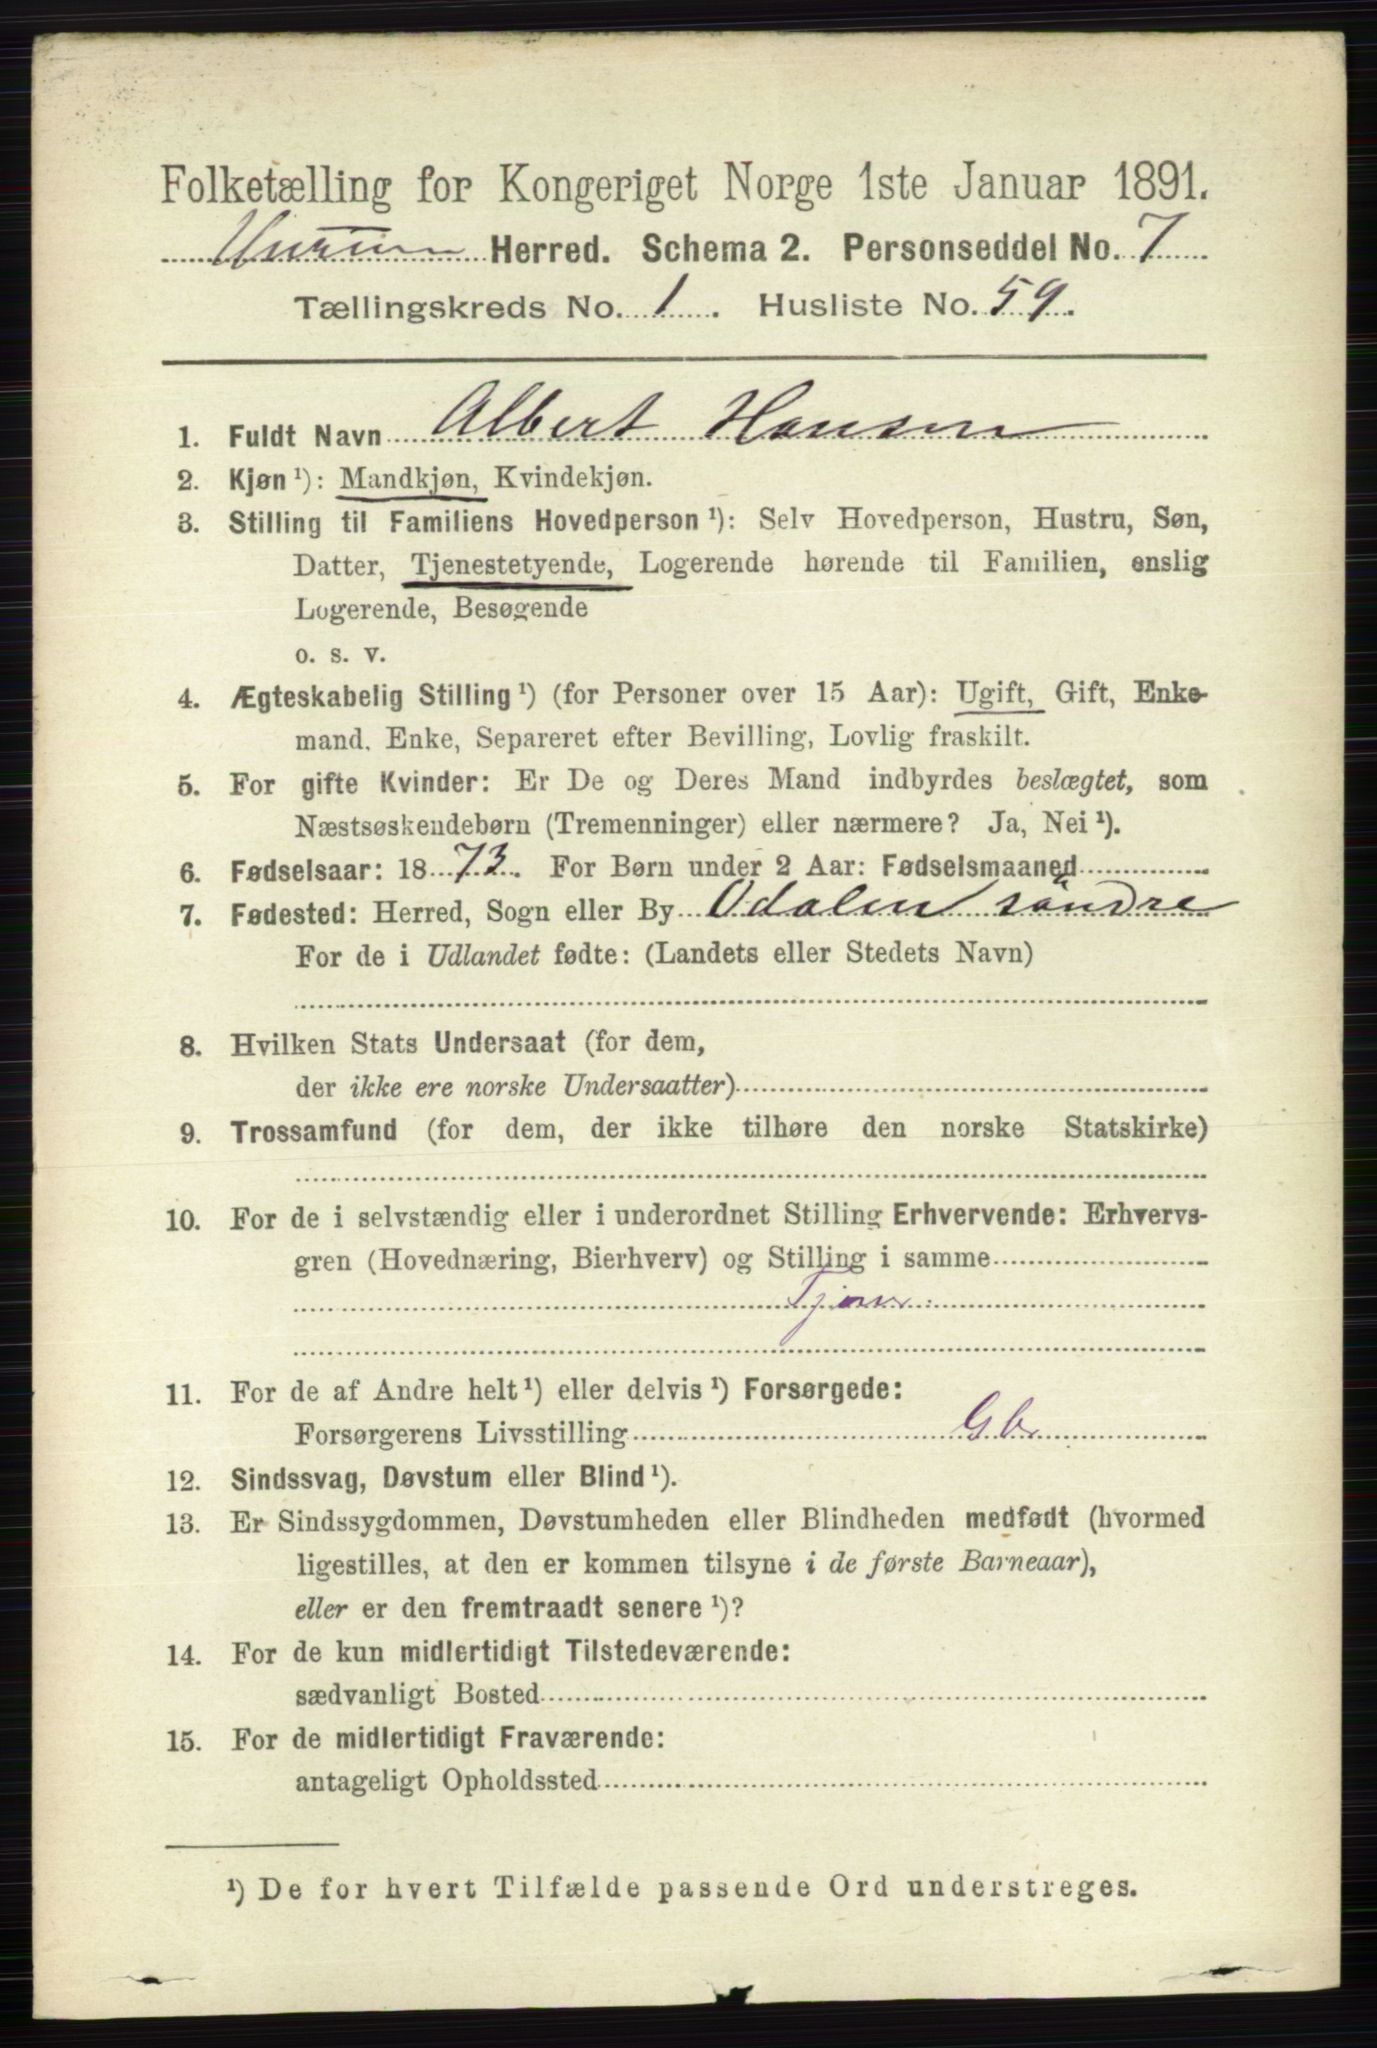 Folketælling for Kongeriget Norge 1ste Januar 1891.
Hurum Herred. Schema 2. Personseddel No. 7
Tællingskreds No. 1. Husliste No. 59.
1. Fuldt Navn Albert Hansen
2. Kjøn ¹): Mandkjøn, Kvindekjøn.
3. Stilling til Familiens Hovedperson ¹): Selv Hovedperson, Hustru, Søn,
Datter, Tjenestetyende, Logerende hørende til Familien, enslig
Logerende, Besøgende
o. s. v.
4. Ægteskabelig Stilling ¹) (for Personer over 15 Aar): Ugift, Gift, Enke-
mand, Enke, Separeret efter Bevilling, Lovlig fraskilt.
5. For gifte Kvinder: Er De og Deres Mand indbyrdes beslægtet, som
Næstsøskendebørn (Tremenninger) eller nærmere? Ja, Nei ¹).
6. Fødselsaar: 1873. For Børn under 2 Aar: Fødselsmaaned
7. Fødested: Herred, Sogn eller By Odalen söndre
For de i Udlandet fødte: (Landets eller Stedets Navn)
8. Hvilken Stats Undersaat (for dem,
der ikke ere norske Undersaatter)
9. Trossamfund (for dem, der ikke tilhøre den norske Statskirke)
10. For de i selvstændig eller i underordnet Stilling Erhvervende: Erhvervs-
gren (Hovednæring, Bierhverv) og Stilling i samme
11. For de af Andre helt ¹) eller delvis ¹) Forsørgede:
Forsørgerens Livsstilling Gbr
12. Sindssvag, Døvstum eller Blind ¹).
13. Er Sindssygdommen, Døvstumheden eller Blindheden medfødt (hvormed
ligestilles, at den er kommen tilsyne i de første Barneaar),
eller er den fremtraadt senere ¹)?
14. For de kun midlertidigt Tilstedeværende:
sædvanligt Bosted
15. For de midlertidigt Fraværende:
antageligt Opholdssted
¹) De for hvert Tilfælde passende Ord understreges.